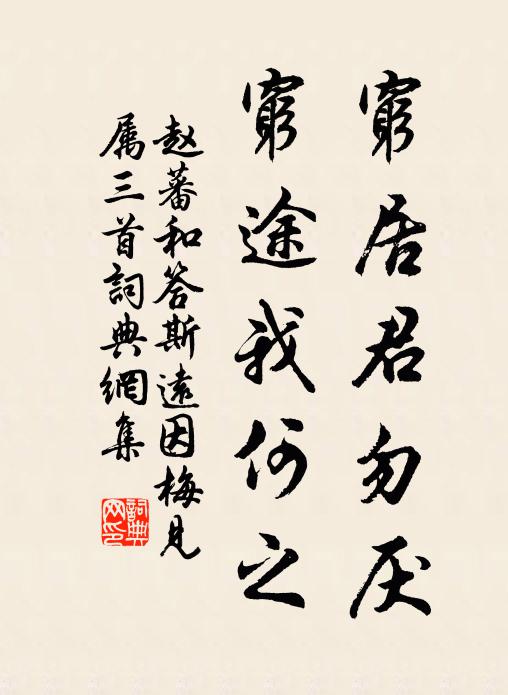 窮居君勿厌
窮途我何之
赵蕃和答斯遠因梅見
属三首詞典網集
詞典
网印